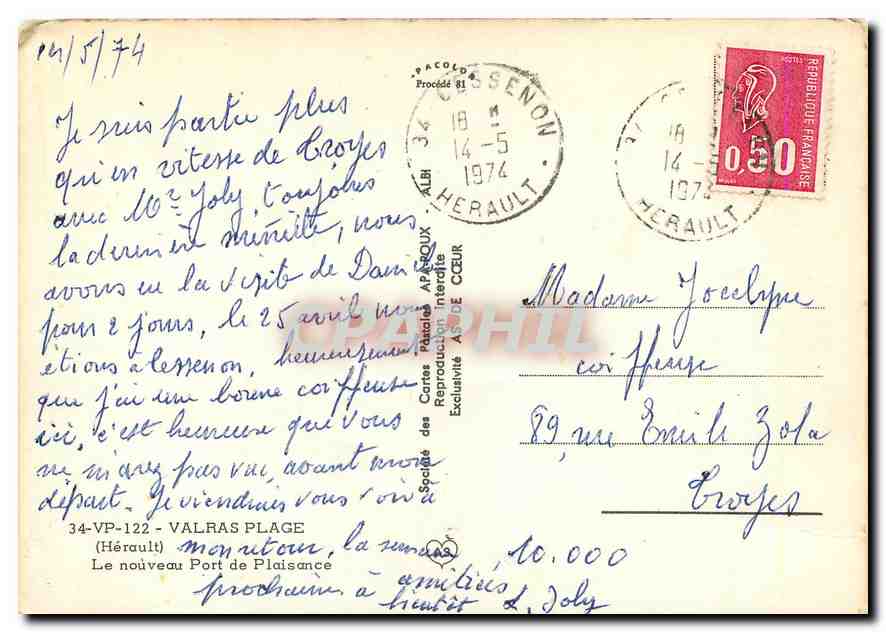 14/5/74
Je suis partie plus
qu'en vitesse de Troyes
avec Mr Joly, toujours
la dernière minute, nous
avons eu la visite de Daniel
pour 2 jours, le 25 avril nous
étions à Cessenon, heureusement
que j'ai une bonne coiffeuse
ici, c'est heureuse que vous
ne m'avez pas vue avant mon
départ. Je viendrais vous voir à
mon retour, la semaine
prochaine à
amitiés
bientôt L. Joly
34-VP-122 - VALRAS PLAGE
(Hérault)
Le nouveau Port de Plaisance
PACOLOR
Procédé 81
Société des Cartes Postales APA-POUX - ALBI
Reproduction Interdite
Exclusivité AS DE CŒUR
34 CESSENON
18 H
14-5
1974
HERAULT
34 CESSENON
18
14-5
1974
HERAULT
POSTES
REPUBLIQUE FRANÇAISE
0,50
CPAPHIL
Madame Jocelyne
coiffeuse
89, rue Emile Zola
Troyes
10.000